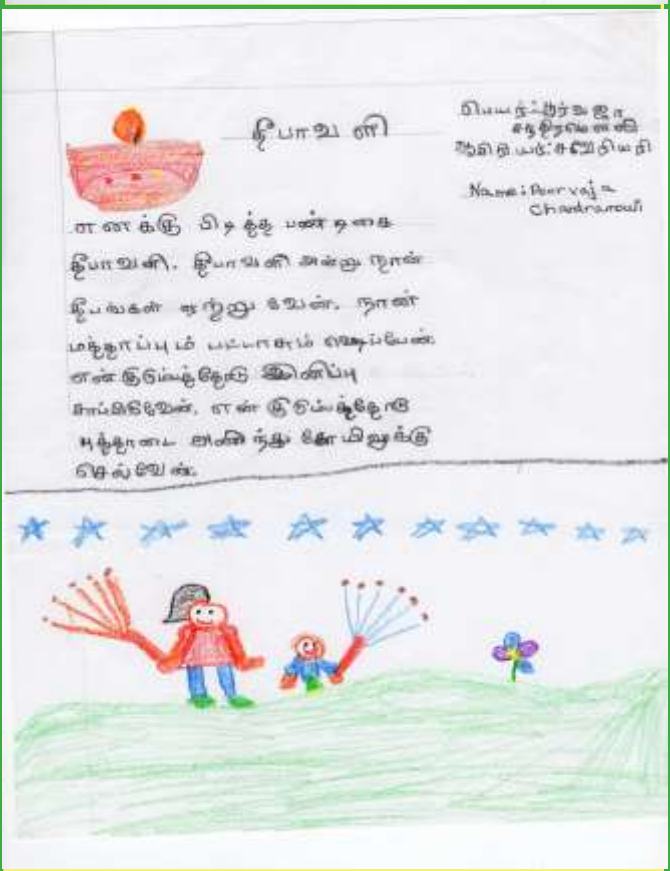 தீபாவளி
பெயர்: பூர்வஜா
சந்திரமௌலி
ஆசிரியர்:
Name: Poorvaja
Chandramouli
எனக்கு பிடித்த பண்டிகை
தீபாவளி. தீபாவளி அன்று நான்
தீபங்கள் ஏற்று வேன். நான்
மத்தாப்பு ம் பட்டாசும் வெடிப்பேன்.
என் குடும்பத்தோடு இனிப்பு
சாப்பிடுவேன். என் குடும்பத்தோடு
புத்தாடை அணிந்து கோயிலுக்கு
செல்வேன்.